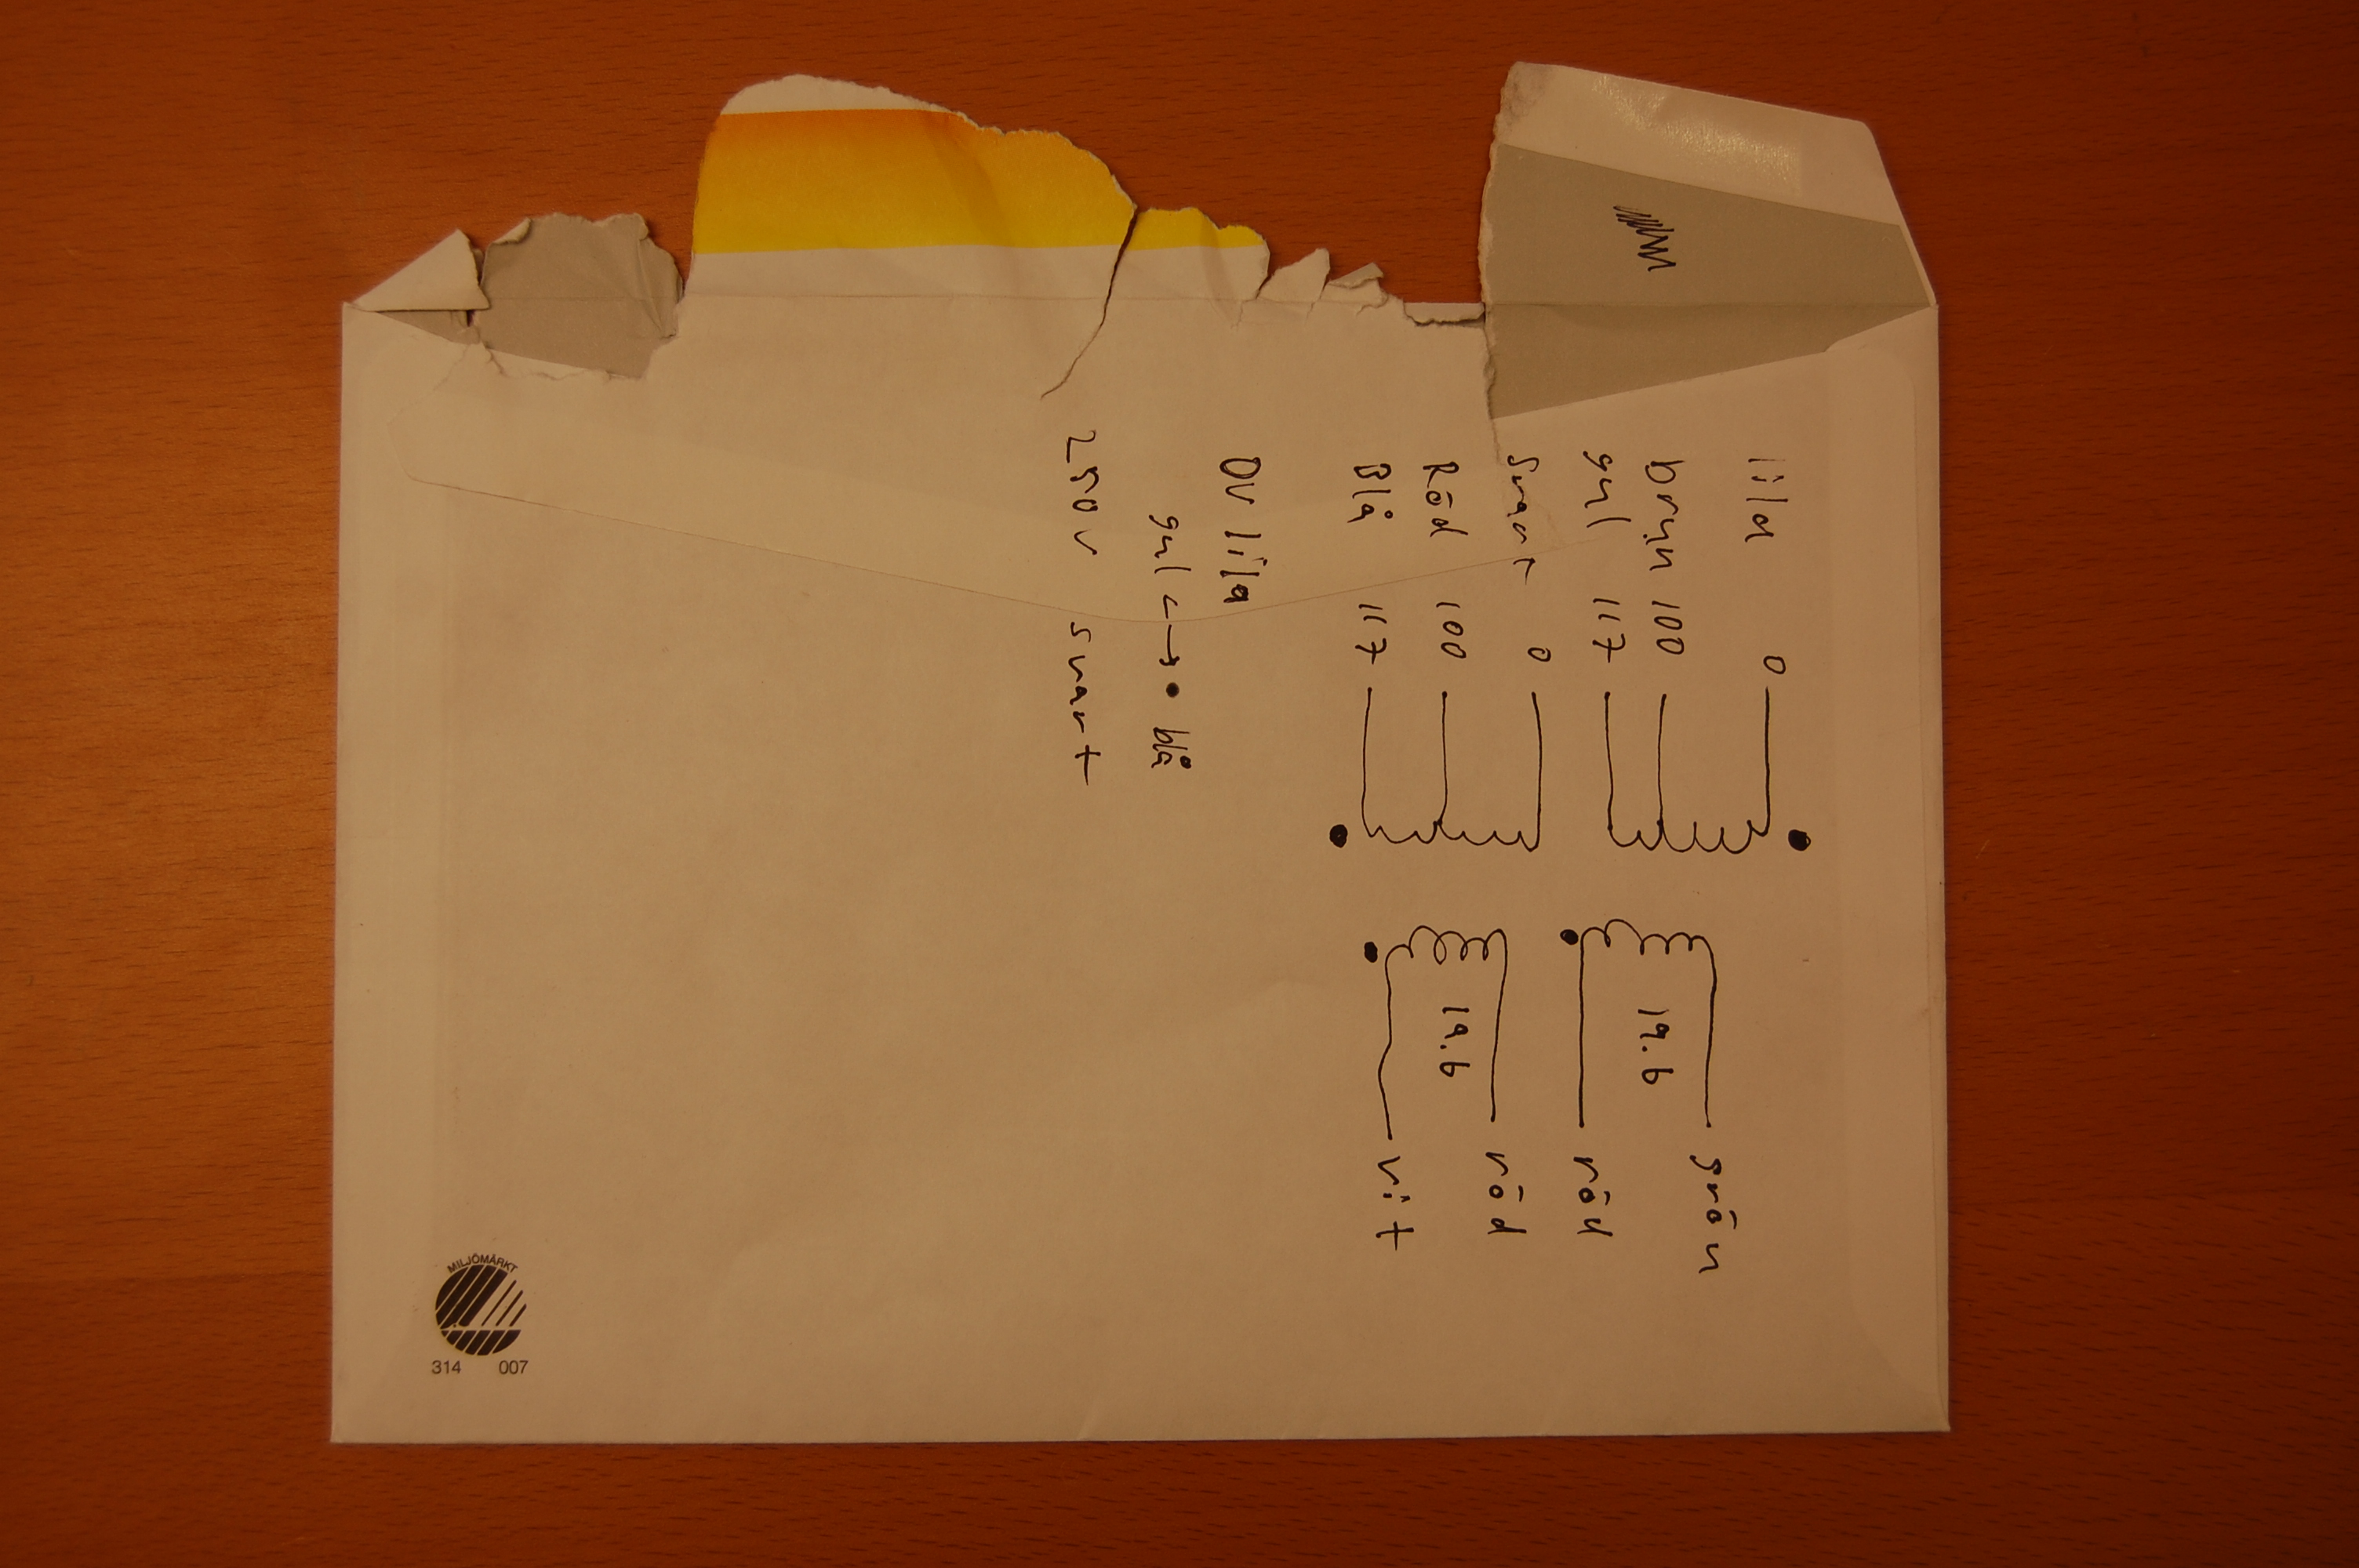 lila 0
brun 100
gul 117
svart 0
Röd 100
Blå 117
19.6
19.6
grön
röd
röd
vit
0V lila
gul <-> • blå
250V svart
MILJÖMÄRKT
314 007